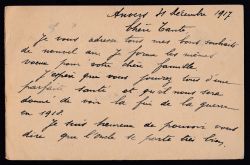 Anvers 31 décembre 1917
Chère Tante,
Je vous adresse tous mes bons souhaits
de nouvel an. Je forme les mêmes
vœux pour votre chère famille.
J'espère que vous jouirez tous d'une
parfaite santé et qu'il nous sera
donné de voir la fin de la guerre
en 1918.
Je suis heureux de pouvoir vous
dire que l'oncle se porte très bien.